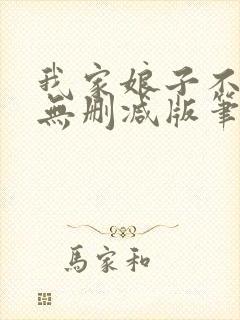 我家娘子不
無删减版筆
馬家和